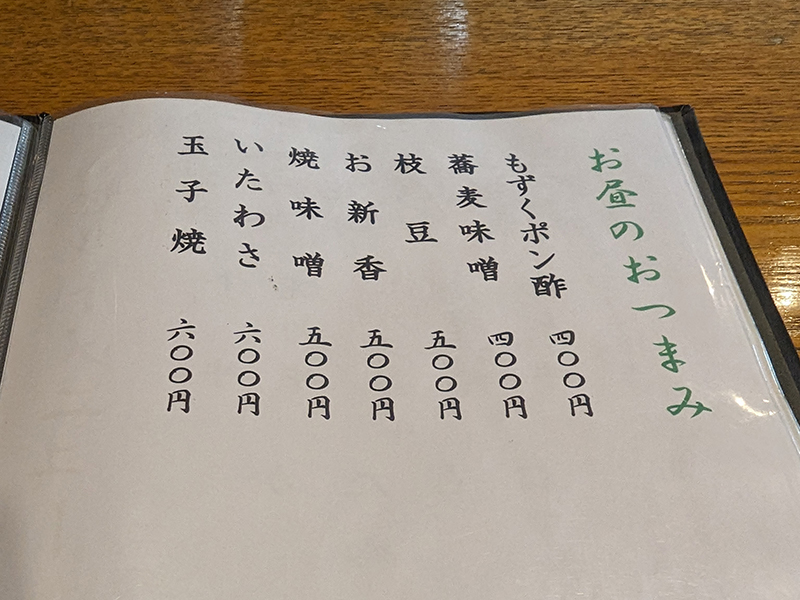 お昼のおつまみ
もずくポン酢 四〇〇円
蕎麦味噌 四〇〇円
枝豆 五〇〇円
お新香 五〇〇円
焼味噌 五〇〇円
いたわさ 六〇〇円
玉子焼 六〇〇円